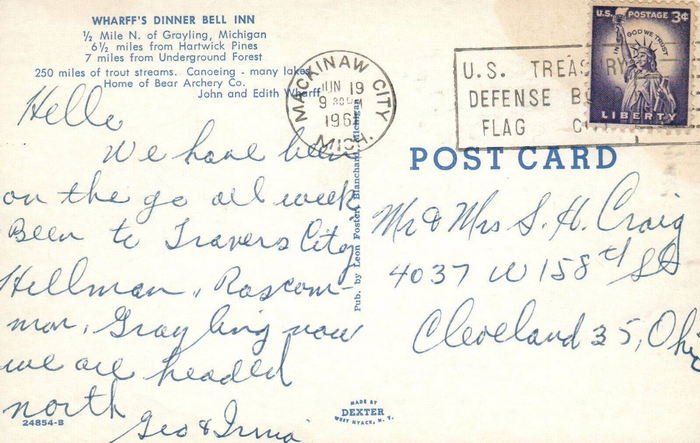 WHARFF'S DINNER BELL INN
½ Mile N. of Grayling, Michigan
6½ miles from Hartwick Pines
7 miles from Underground Forest
250 miles of trout streams. Canoeing - many lakes
Home of Bear Archery Co.
John and Edith Wharff
Hello
We have been
on the go all week
Been to Travers City
Hillman, Roscom-
mon, Grayling now
we are headed
north
Geo & Irma
24854-B
Pub. by Leon Foster, Blanchard, Michigan
MADE BY
DEXTER
WEST NYACK, N. Y.
MACKINAW CITY
JUN 19
9
196
MICH.
U.S. TREASURY
DEFENSE
FLAG
U.S. POSTAGE 3¢
IN GOD WE TRUST
LIBERTY
POST CARD
Mr & Mrs S. H. Craig
4037 W 158th St
Cleveland 35, Ohio